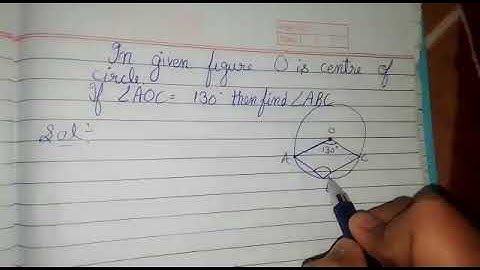 In given figure O is centre of
circle.
If ∠AOC = 130° then find ∠ABC
Sol:-
O
130°
A
C